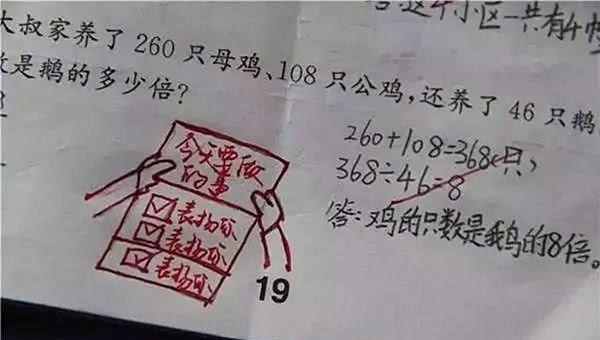 这个小区一共有4幢
大叔家养了 260 只母鸡、108 只公鸡,还养了 46 只鹅
数是鹅的多少倍?
260+108=368(只)
368÷46=8
答:鸡的只数是鹅的8倍。
今天要做
的事
☑表扬你
☑表扬你
☑表扬你
19